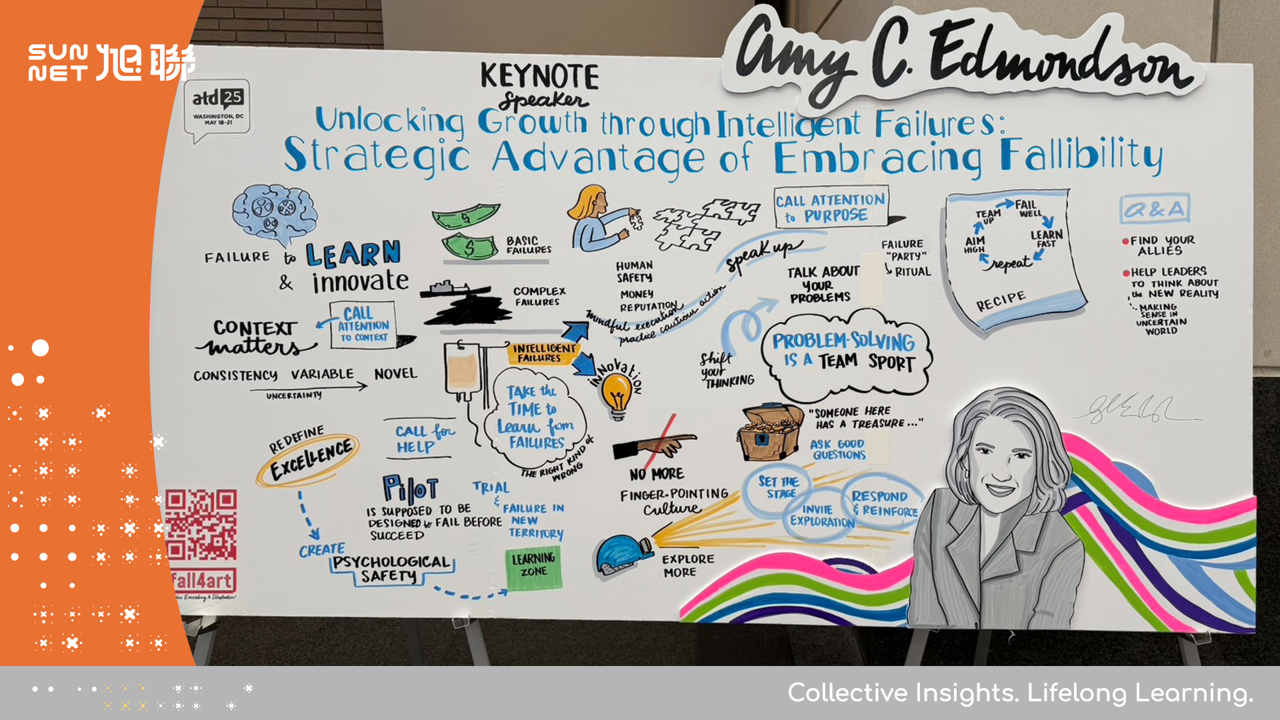 SUN
NET 旭聯
atd 25
WASHINGTON, DC
MAY 18-21
KEYNOTE
Speaker
Amy C. Edmondson
Unlocking Growth through Intelligent Failures:
Strategic Advantage of Embracing Fallibility
FAILURE to LEARN
& innovate
CONTEXT
matters
CALL
ATTENTION
TO CONTEXT
CONSISTENCY VARIABLE NOVEL
UNCERTAINTY
REDEFINE
EXCELLENCE
CREATE
PSYCHOLOGICAL
SAFETY
$
$
BASIC
FAILURES
COMPLEX
FAILURES
INTELLIGENT
FAILURES
TAKE the
TIME to
Learn from
FAILURES
THE RIGHT KIND of
WRONG
CALL for
HELP
PILOT
IS SUPPOSED TO BE
DESIGNED to FAIL BEFORE
SUCCEED
TRIAL
&
FAILURE IN
NEW
TERRITORY
LEARNING
ZONE
HUMAN
SAFETY
MONEY
REPUTATION
mindful execution
practice cautious action
INNOVATION
speak up
CALL ATTENTION
to PURPOSE
TALK ABOUT
YOUR
PROBLEMS
FAILURE
"PARTY"
RITUAL
Shift
YOUR
THINKING
PROBLEM-SOLVING
IS A TEAM SPORT
NO MORE
FINGER-POINTING
Culture
"SOMEONE HERE
HAS A TREASURE..."
ASK GOOD
QUESTIONS
SET THE
STAGE
INVITE
EXPLORATION
RESPOND
& REINFORCE
EXPLORE
MORE
TEAM
UP
FAIL
WELL
LEARN
FAST
repeat
AIM
HIGH
RECIPE
Q&A
FIND YOUR
ALLIES
HELP LEADERS
TO THINK ABOUT
the NEW REALITY
MAKING
SENSE IN
UNCERTAIN
WORLD
fall4art
Collective Insights. Lifelong Learning.